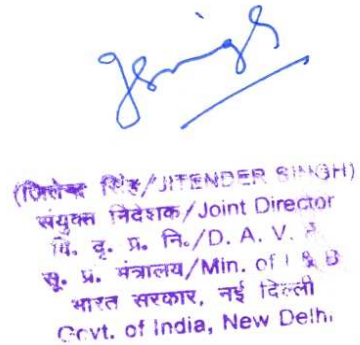 (जितेन्द्र सिंह/JITENDER SINGH)
संयुक्त निदेशक/Joint Director
वि. दृ. प्र. नि./D. A. V. P.
सू. प्र. मंत्रालय/Min. of I & B
भारत सरकार, नई दिल्ली
Govt. of India, New Delhi